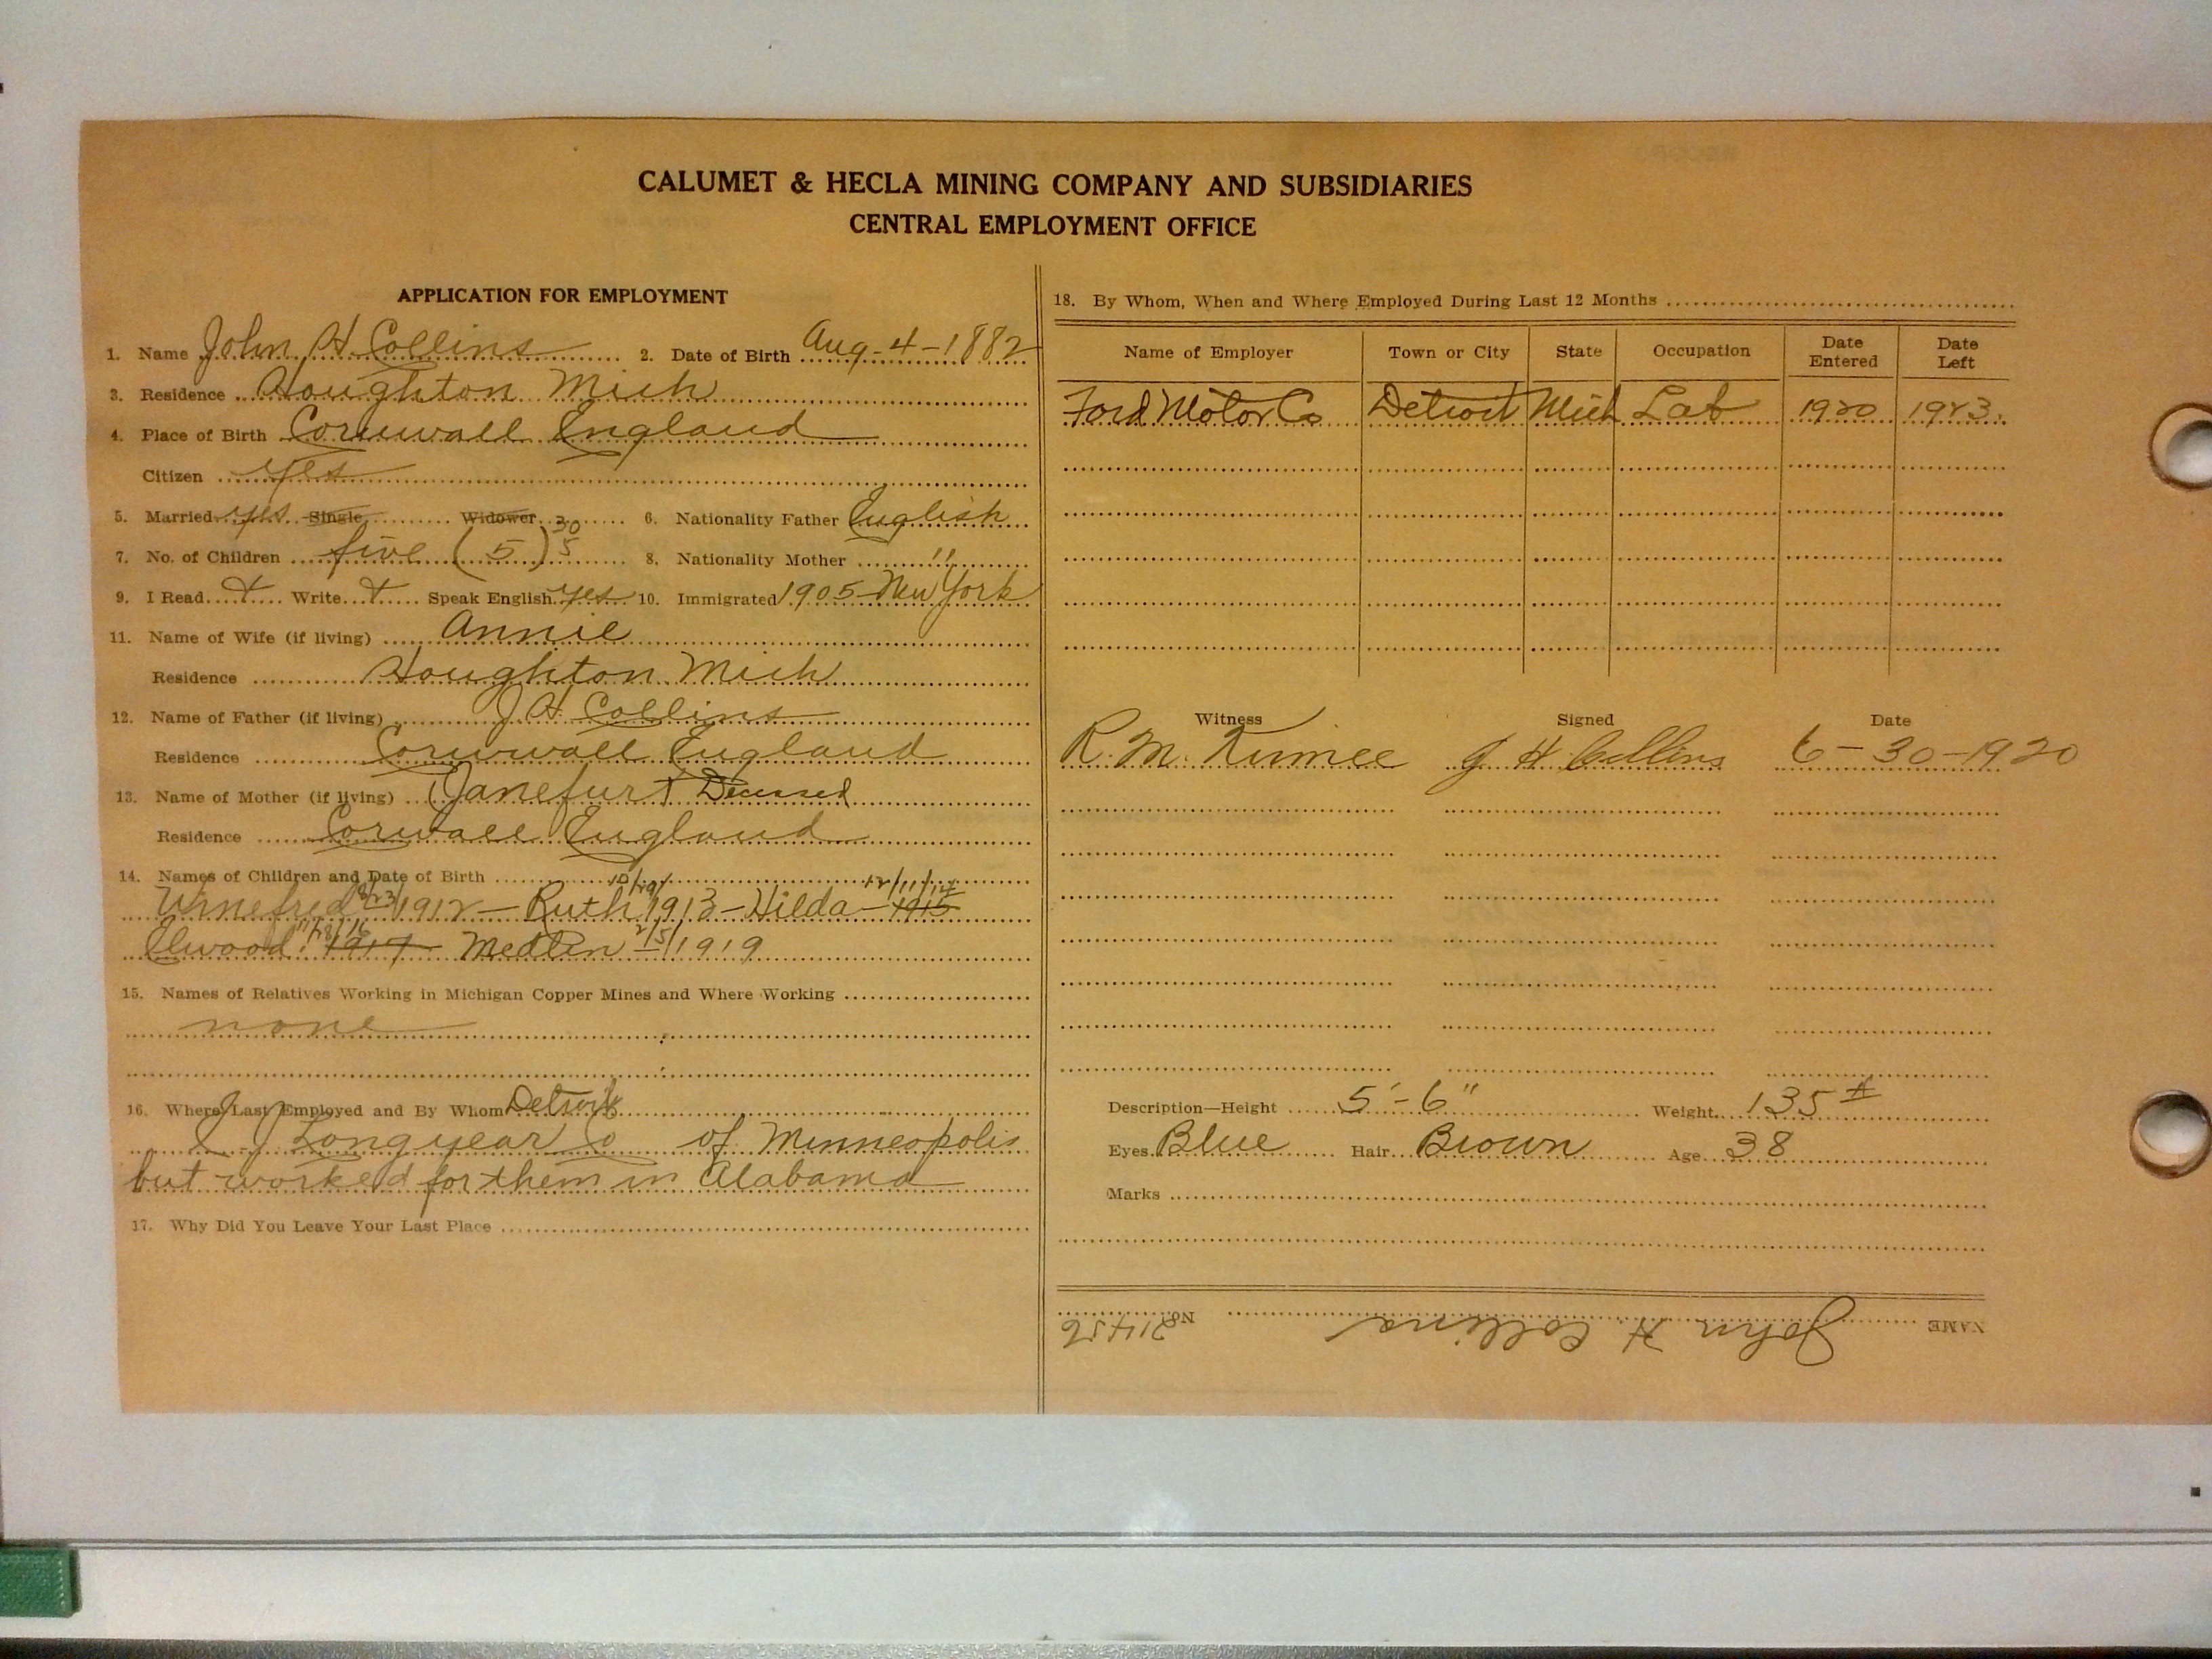 CALUMET & HECLA MINING COMPANY AND SUBSIDIARIES
CENTRAL EMPLOYMENT OFFICE
APPLICATION FOR EMPLOYMENT
1. Name John H Collins 2. Date of Birth Aug-4-1882
3. Residence Houghton Mich
4. Place of Birth Cornwall England
Citizen yes
5. Married yes Single Widower 30 6. Nationality Father English
7. No. of Children five (5) 5 8. Nationality Mother "
9. I Read + Write + Speak English yes 10. Immigrated 1905 New York
11. Name of Wife (if living) Annie
Residence Houghton Mich
12. Name of Father (if living) J H Collins
Residence Cornwall England
13. Name of Mother (if living) Janefurt Decessed
Residence Corwall England
14. Names of Children and Date of Birth
Winefred 8/23/1912 - Ruth 1913 - Hilda - 12/11/14 1915
Elwood 1917 Medlin 2/5/1919
15. Names of Relatives Working in Michigan Copper Mines and Where Working
none
16. Where Last Employed and By Whom Detroit
Longyear Co of Minneopolis
but worked for them in Alabama
17. Why Did You Leave Your Last Place
18. By Whom, When and Where Employed During Last 12 Months
Name of Employer Town or City State Occupation Date Entered Date Left
Ford Motor Co Detroit Mich Lab 1920 1923.
Witness Signed Date
R. M. J H Collins 6-30-1920
Description—Height 5'-6" Weight 135 #
Eyes Blue Hair Brown Age 38
Marks
NAME John H Collins No. 21456